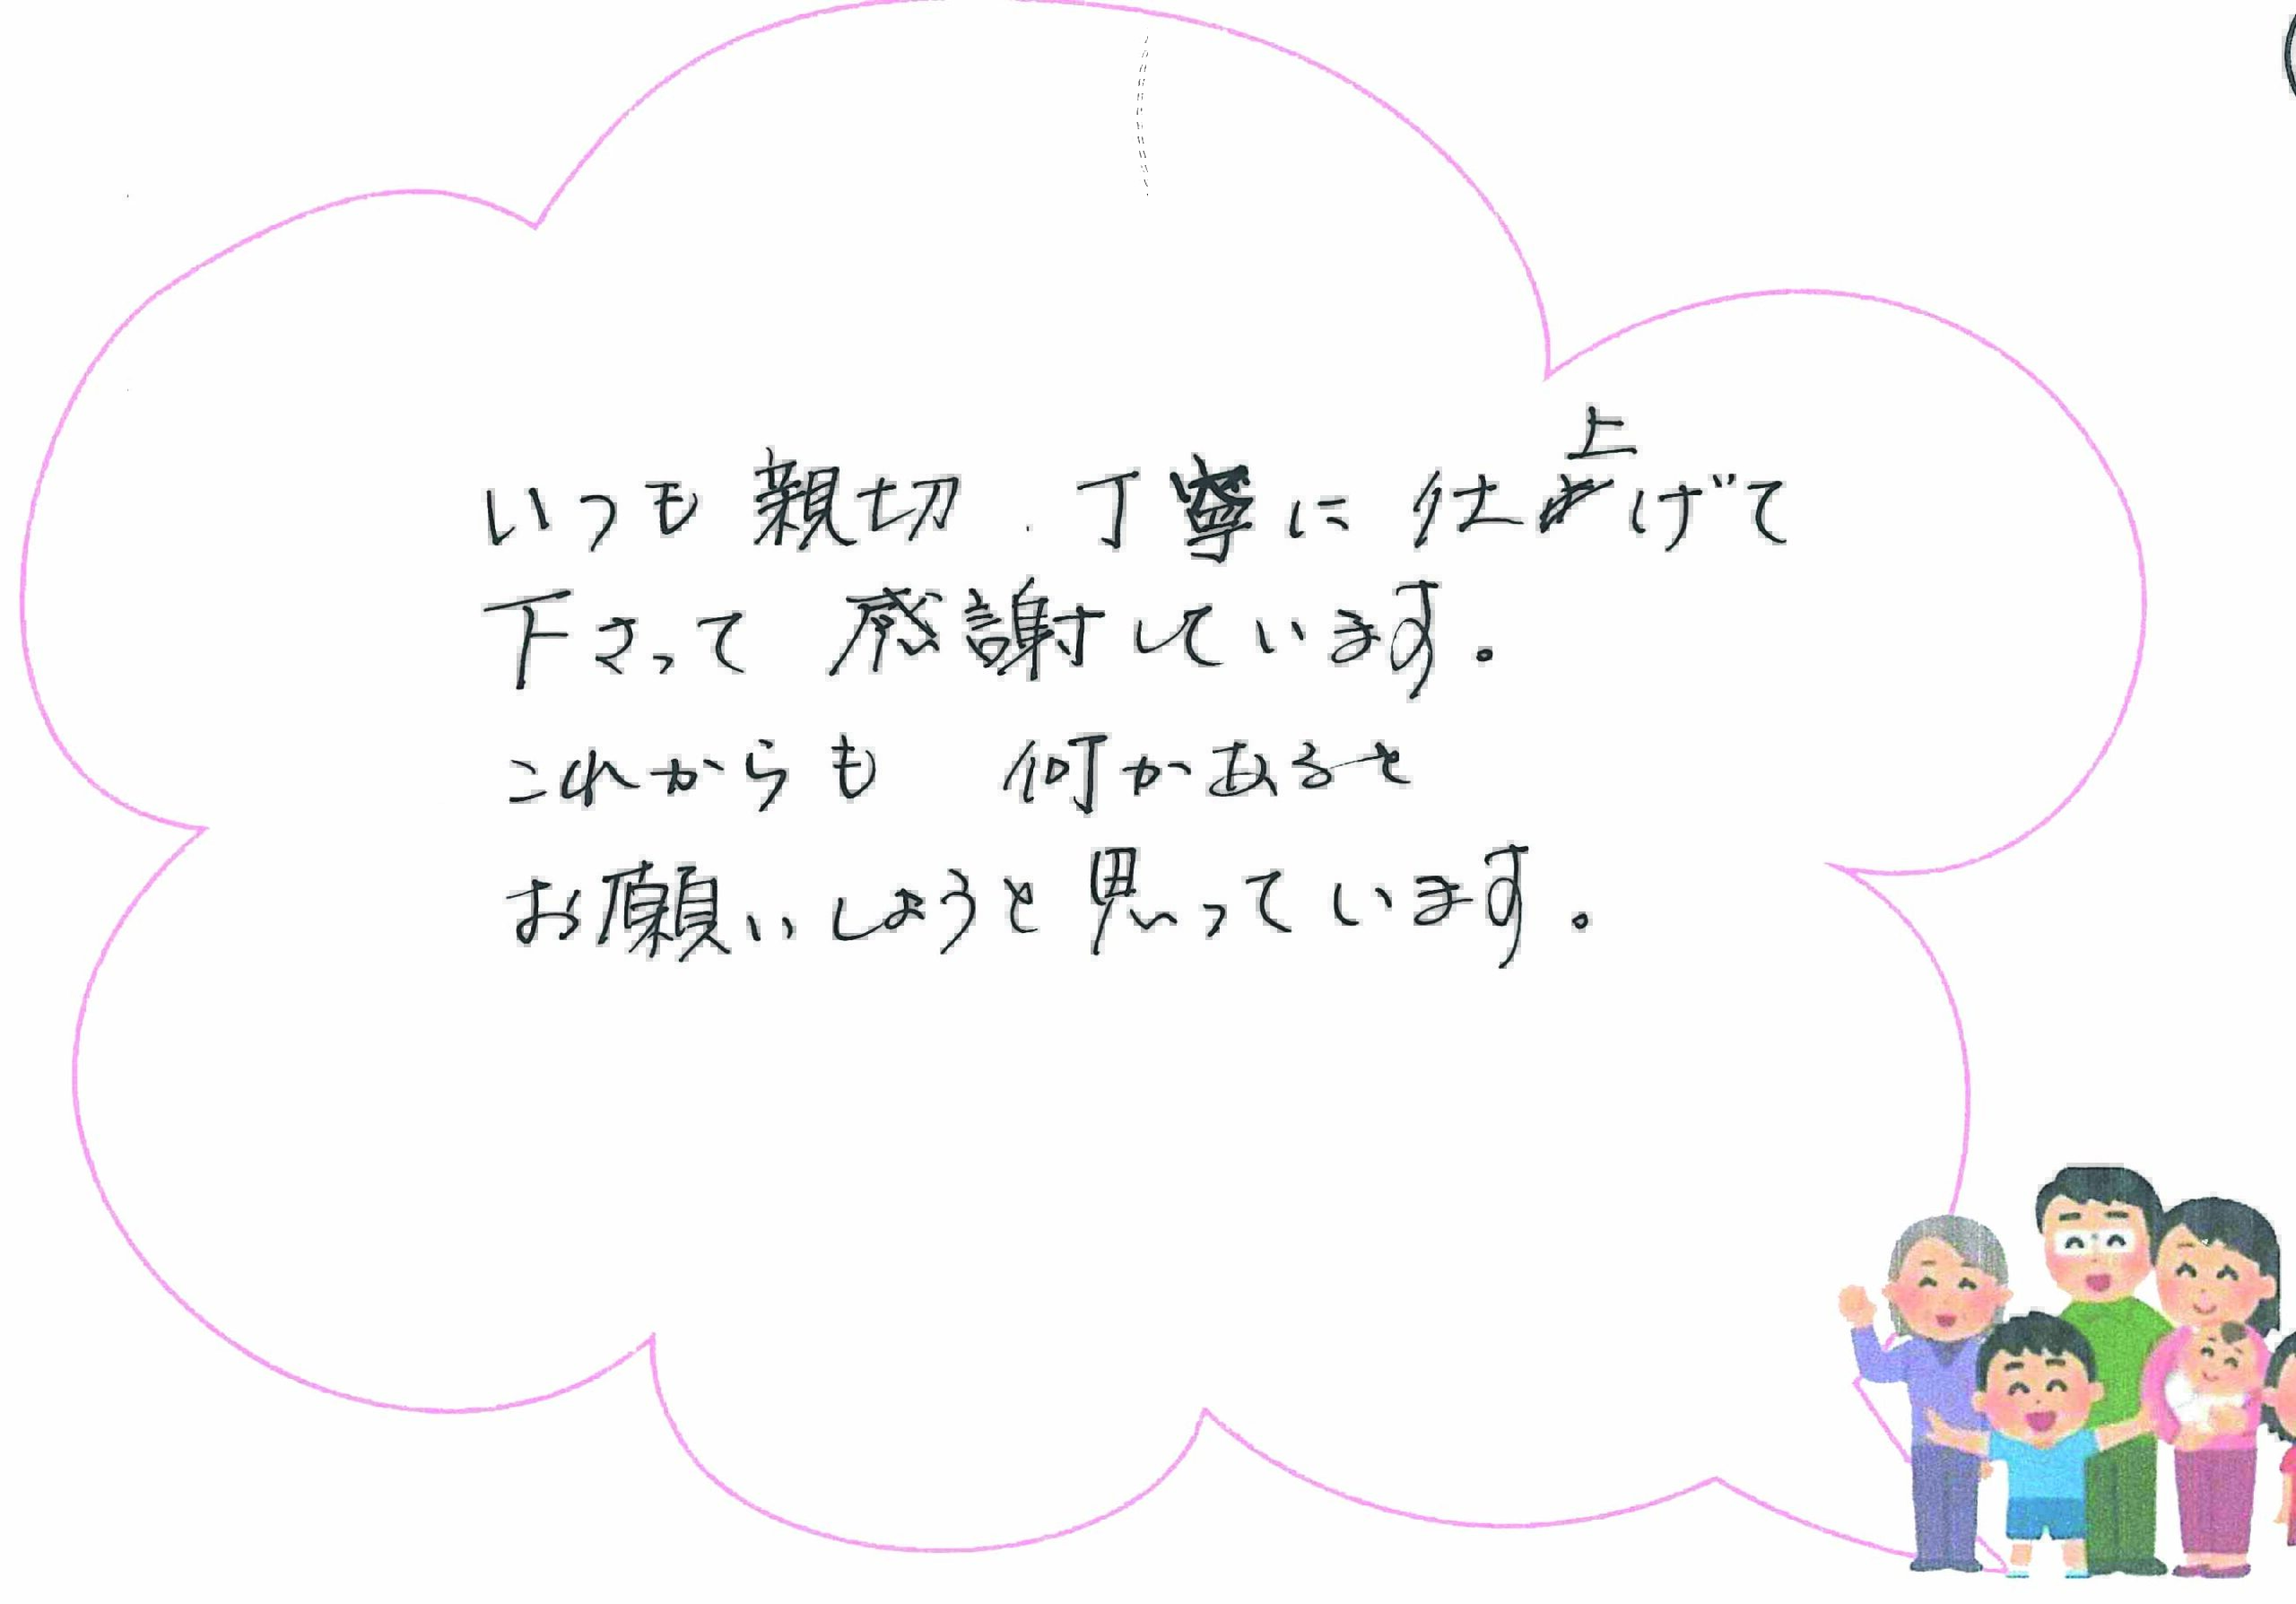 いつも親切 丁寧に仕上げて
下さって 感謝しています。
これからも 何かあると
お願いしようと思っています。